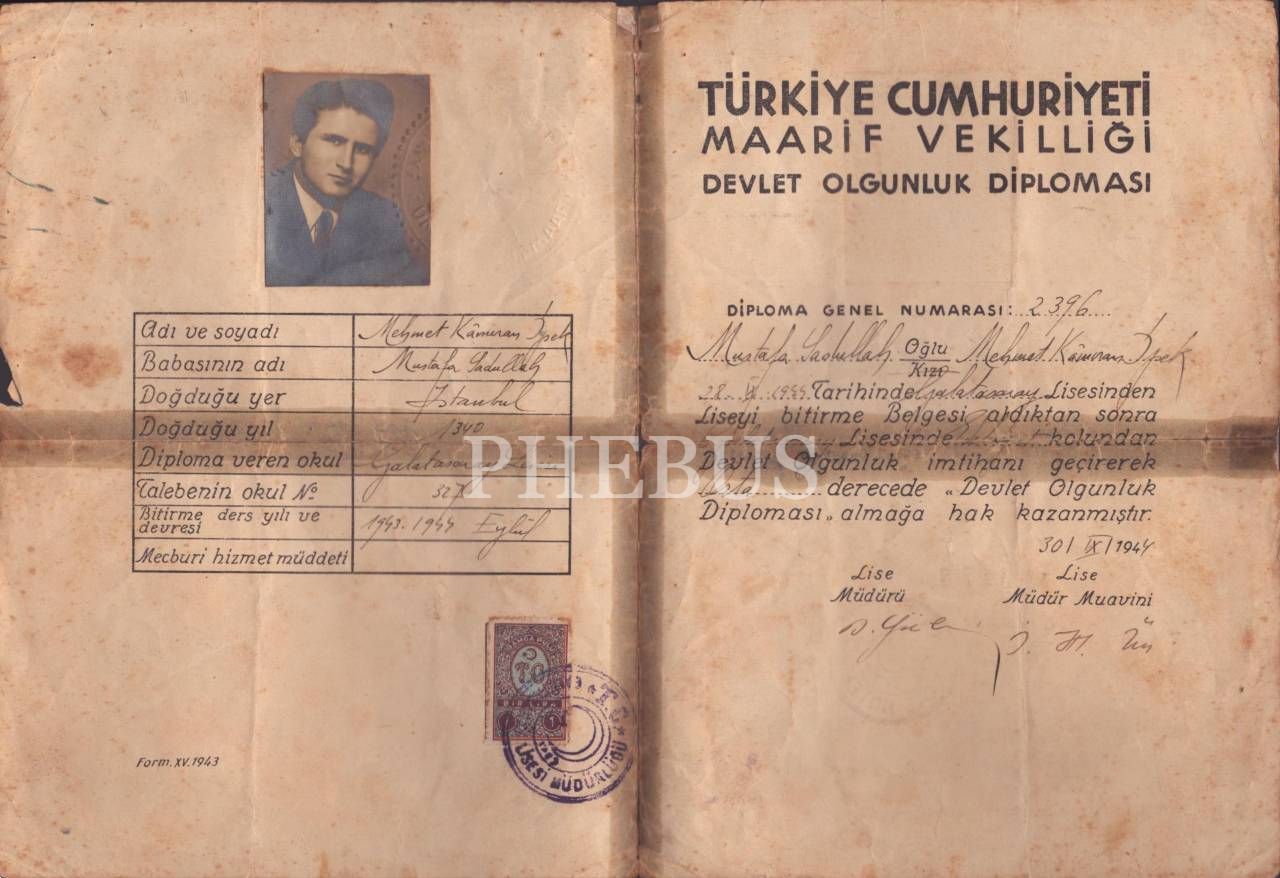 Adı ve soyadı Mehmet Kâmuran İpek
Babasının adı Mustafa Sadullah
Doğduğu yer İstanbul
Doğduğu yıl 1340
Diploma veren okul Galatasaray Lisesi
Talebenin okul No 32
Bitirme ders yılı ve
devresi 1943-1944 Eylûl
Mecburi hizmet müddeti
DAMGA PULU
T.C
BİR LİRA
1 1
T.C.
LİSESİ MÜDÜRLÜĞÜ
Form. XV. 1943
TÜRKİYE CUMHURİYETİ
MAARİF VEKİLLİĞİ
DEVLET OLGUNLUK DİPLOMASI
DİPLOMA GENEL NUMARASI: 2396
Mustafa Sadullah Oğlu Mehmet Kâmuran İpek
Kızı
28 IX 1944 Tarihinde Galatasaray Lisesinden
Liseyi bitirme Belgesi aldıktan sonra
Lisesinde kolundan
Devlet Olgunluk imtihanı geçirerek
Orta derecede „Devlet Olgunluk
Diploması„ almağa hak kazanmıştır.
30/IX/1944
Lise Lise
Müdürü Müdür Muavini
PHEBUS